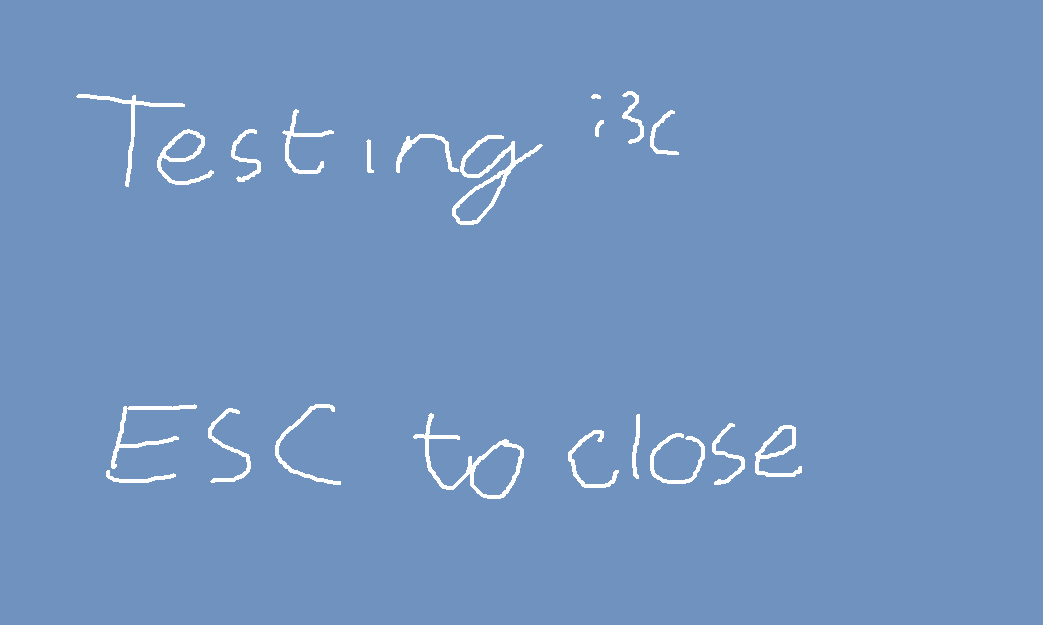 Testing i3c
ESC to close